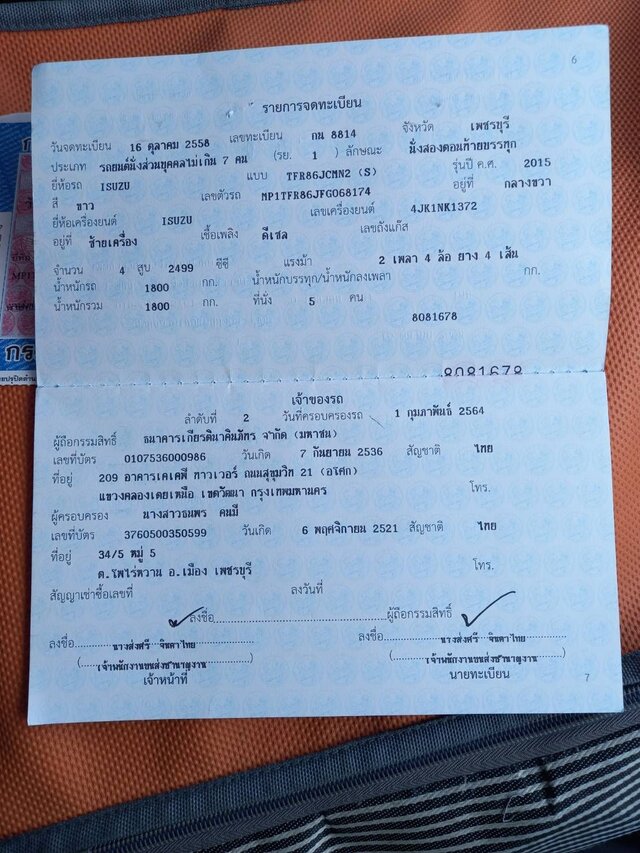 6
รายการจดทะเบียน
วันจดทะเบียน 16 ตุลาคม 2558 เลขทะเบียน กน 8814 จังหวัด เพชรบุรี
ประเภท รถยนต์นั่งส่วนบุคคลไม่เกิน 7 คน (รย. 1 ) ลักษณะ นั่งสองตอนท้ายบรรทุก
ยี่ห้อรถ ISUZU แบบ TFR86JCMN2 (S) รุ่นปี ค.ศ. 2015
สี ขาว เลขตัวรถ MP1TFR86JFG068174 อยู่ที่ กลางขวา
ยี่ห้อเครื่องยนต์ ISUZU เลขเครื่องยนต์ 4JK1NK1372
อยู่ที่ ซ้ายเครื่อง เชื้อเพลิง ดีเซล เลขถังแก๊ส
จำนวน 4 สูบ 2499 ซีซี แรงม้า 2 เพลา 4 ล้อ ยาง 4 เส้น
น้ำหนักรถ 1800 กก. น้ำหนักบรรทุก/น้ำหนักลงเพลา กก.
น้ำหนักรวม 1800 กก. ที่นั่ง 5 คน
8081678
8081678
เจ้าของรถ
ลำดับที่ 2 วันที่ครอบครองรถ 1 กุมภาพันธ์ 2564
ผู้ถือกรรมสิทธิ์ ธนาคารเกียรตินาคินภัทร จำกัด (มหาชน)
เลขที่บัตร 0107536000986 วันเกิด 7 กันยายน 2536 สัญชาติ ไทย
ที่อยู่ 209 อาคารเคเคพี ทาวเวอร์ ถนนสุขุมวิท 21 (อโศก)
แขวงคลองเตยเหนือ เขตวัฒนา กรุงเทพมหานคร โทร.
ผู้ครอบครอง นางสาวธนพร คนมี
เลขที่บัตร 3760500350599 วันเกิด 6 พฤศจิกายน 2521 สัญชาติ ไทย
ที่อยู่ 34/5 หมู่ 5
ต.โพไร่หวาน อ.เมือง เพชรบุรี โทร.
สัญญาเช่าซื้อเลขที่ ลงวันที่
ลงชื่อ ผู้ถือกรรมสิทธิ์
ลงชื่อ นางส่งศรี จินดาไทย ลงชื่อ นางส่งศรี จินดาไทย
(เจ้าพนักงานขนส่งชำนาญงาน) (เจ้าพนักงานขนส่งชำนาญงาน)
เจ้าหน้าที่ นายทะเบียน
7